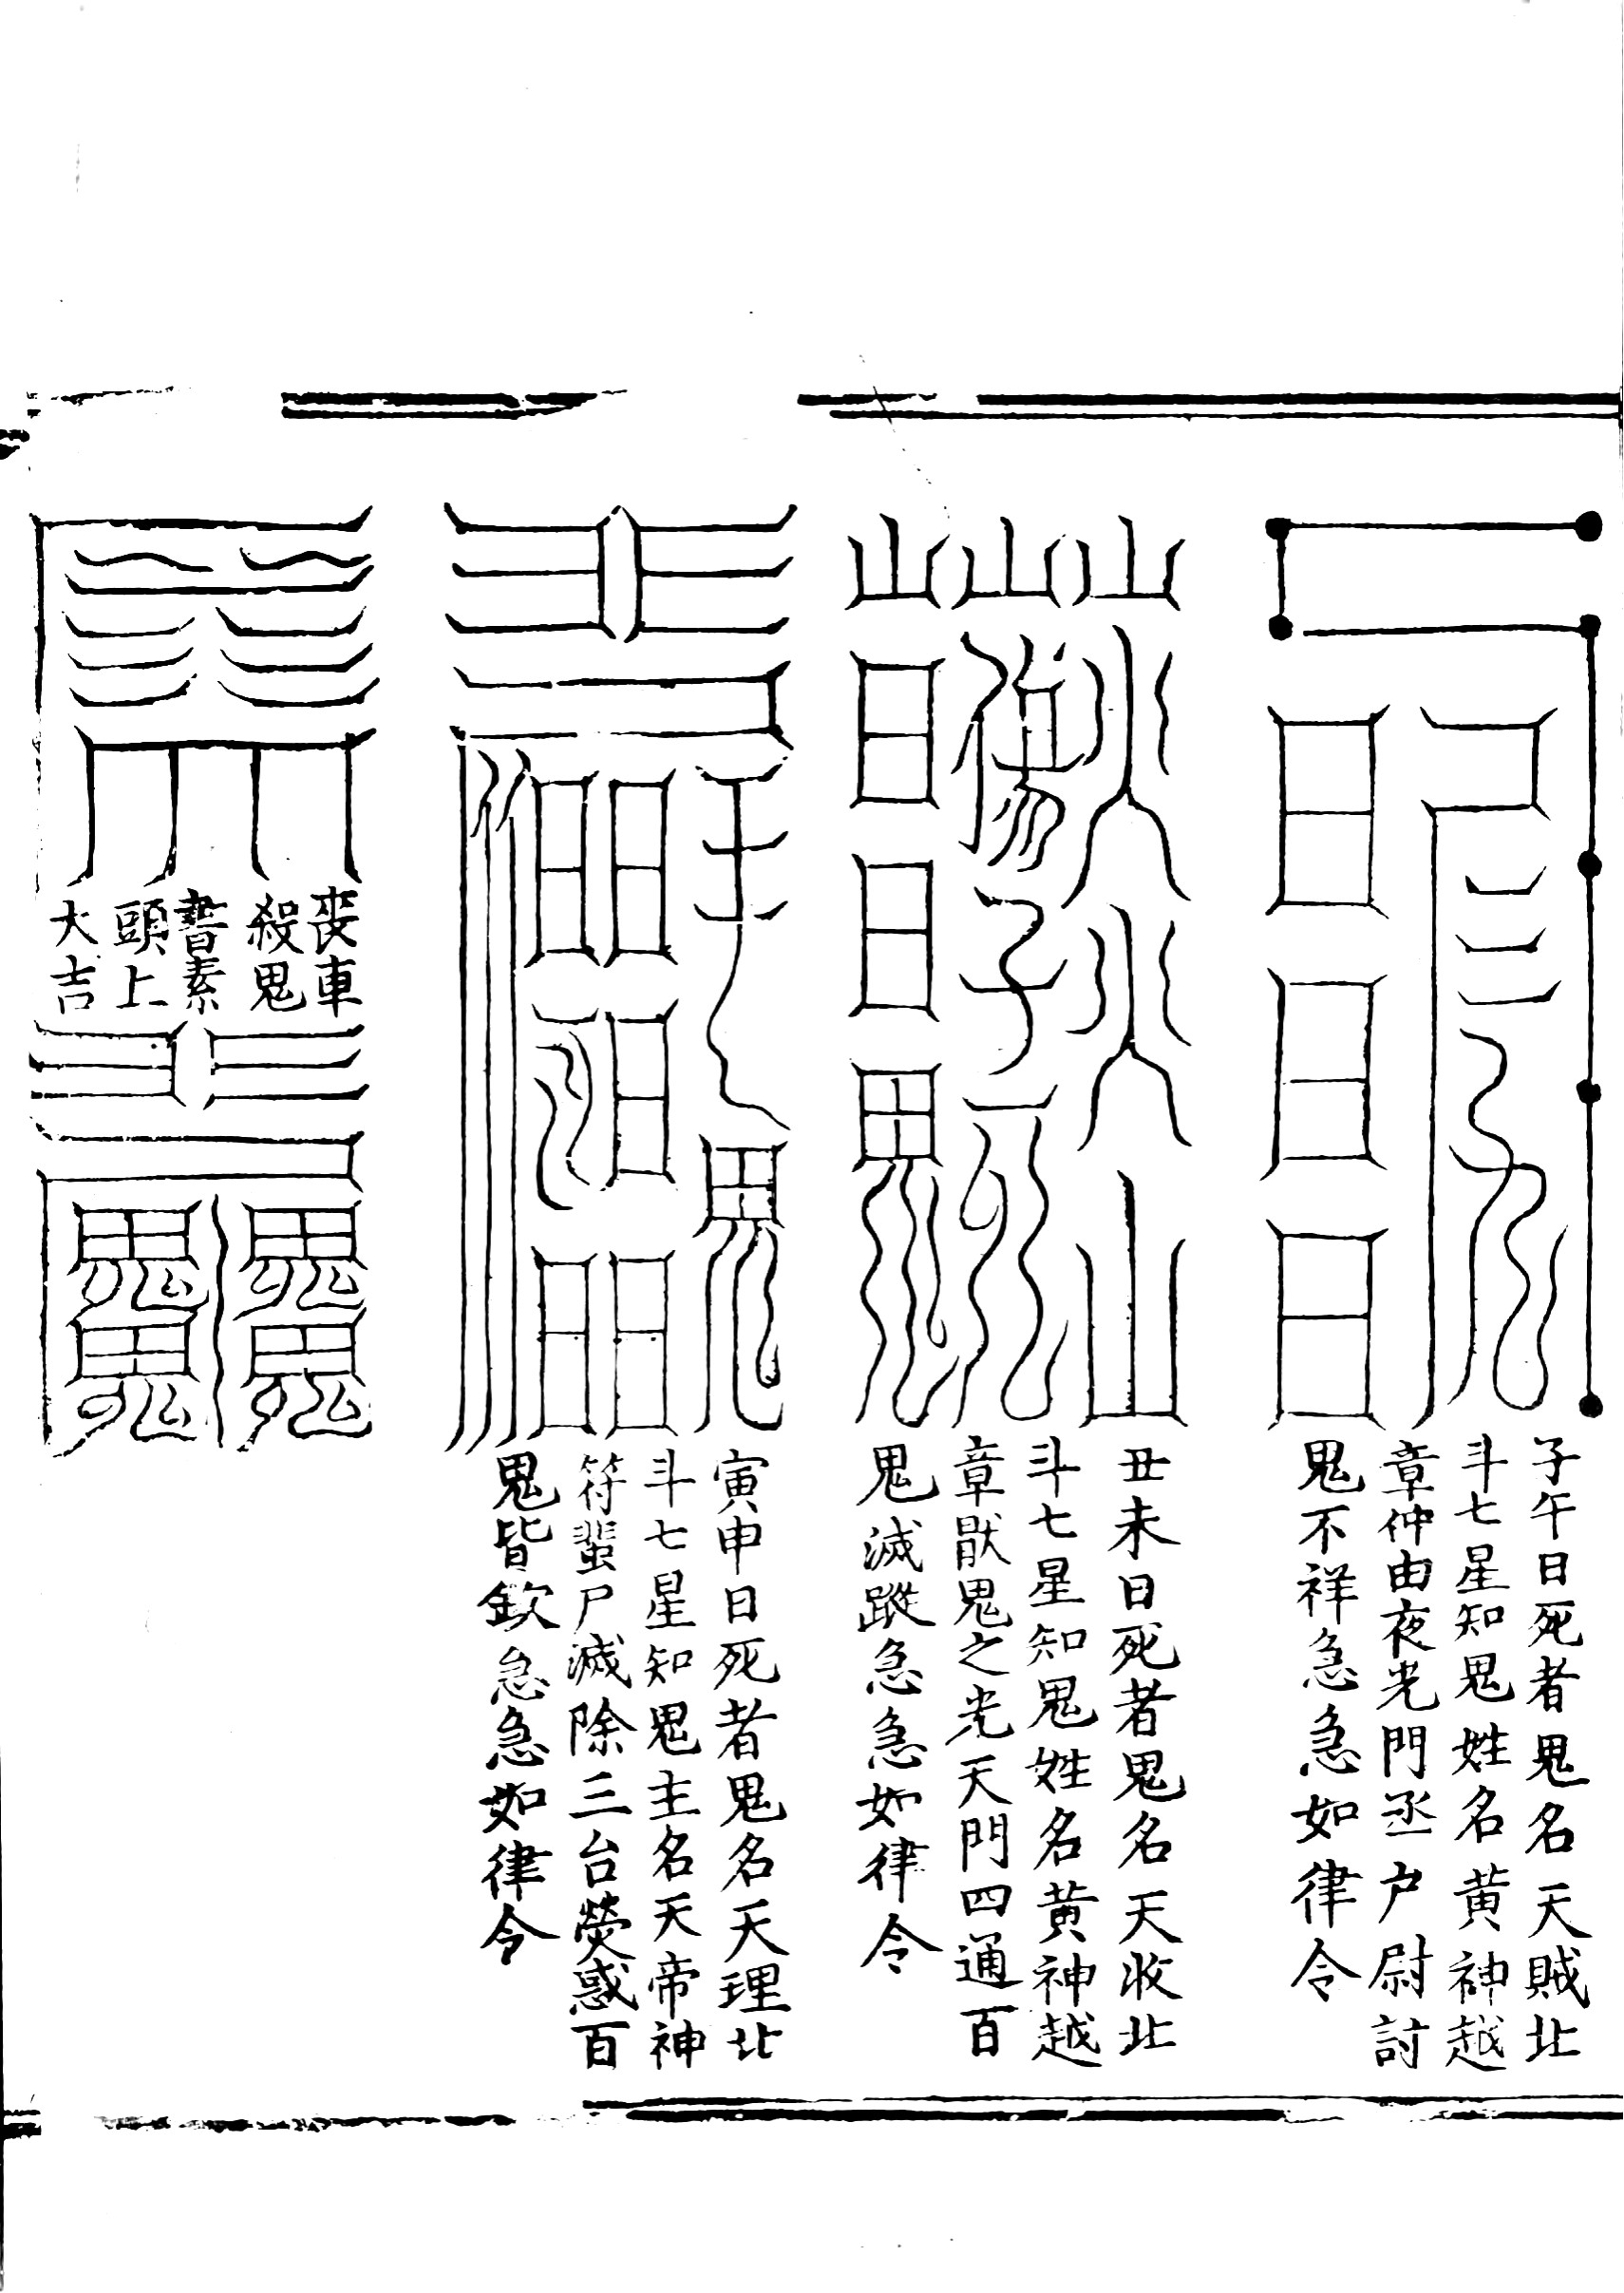 子午日死者鬼名天賊北
斗七星知鬼姓名黄神越
章仲由夜光門丞户尉討
鬼不祥急急如律令
丑未日死者鬼名天收北
斗七星知鬼姓名黄神越
章厭鬼之光天門四通百
鬼滅蹤急急如律令
寅申日死者鬼名天理北
斗七星知鬼主名天帝神
符蜚尸滅除三台熒惑百
鬼皆欽急急如律令
喪車
殺鬼
書素
頭上
大吉